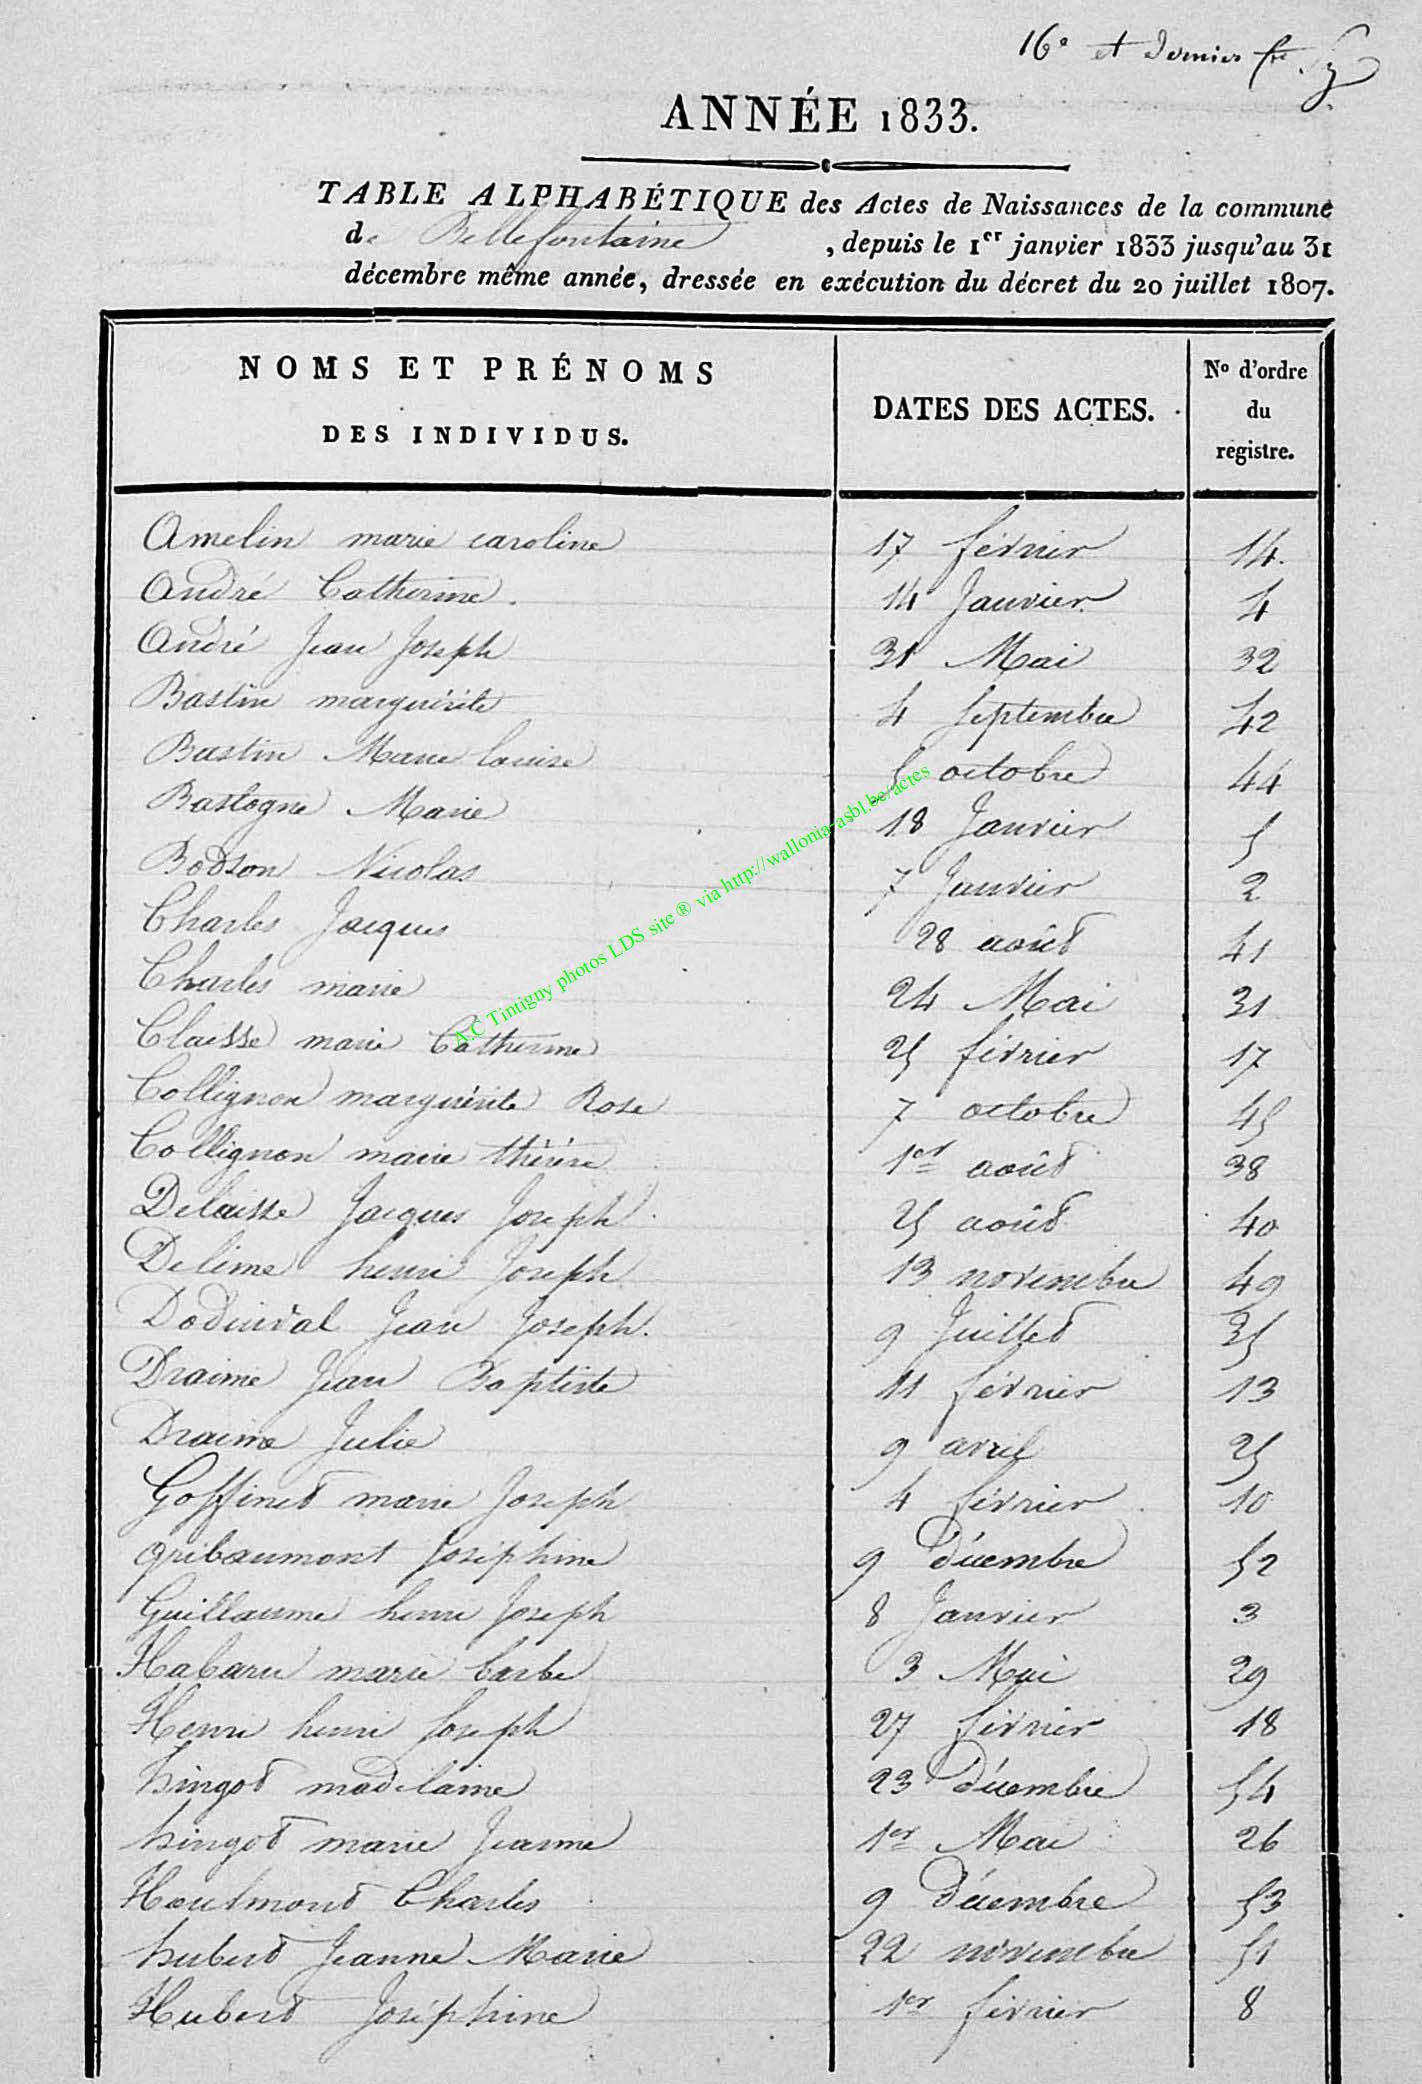 16e et dernier
ANNÉE 1833.
TABLE ALPHABÉTIQUE des Actes de Naissances de la commune
de Bellefontaine , depuis le 1er janvier 1833 jusqu'au 31
décembre même année, dressée en exécution du décret du 20 juillet 1807.
NOMS ET PRÉNOMS DES INDIVIDUS. DATES DES ACTES. No d'ordre du régistre.
Amelin marie caroline 17 février 14.
André Catherine. 14 Janvier 4
André Jean Joseph 31 Mai 32
Bastin marguérite 4 Septembre 42
Bastin Marie louise 5 octobre 44
Bastogne Marie 18 Janvier 5
Bodson Nicolas 7 Janvier 2
Charles Jacques 28 août 41
Charles marie 24 Mai 31
Claisse marie Catherine 25 février 17
Collignon marguérite Rose 7 octobre 45
Collignon marie thérèse 1er août 38
Delaisse Jacques Joseph 25 août 40
Delime henri Joseph 13 novembre 49
Dodinval Jean Joseph. 9 Juillet 35
Draime Jean Baptiste 11 février 13
Draime Julie 9 avril 25
Goffinet marie Joseph 4 février 10
gribaumont Joséphine 9 décembre 52
Guillaume henri Joseph 8 Janvier 3
Habaru marie barbe 3 Mai 29
Henri henri Joseph 27 février 18
hingot madelaine 23 décembre 54
hingot marie Jeanne 1er Mai 26
Houlmont Charles 9 décembre 53
hubert Jeanne Marie 22 novembre 51
Hubert Joséphine 1er février 8
A.C Tintigny photos LDS site ® via http://wallonia-asbl.be/actes